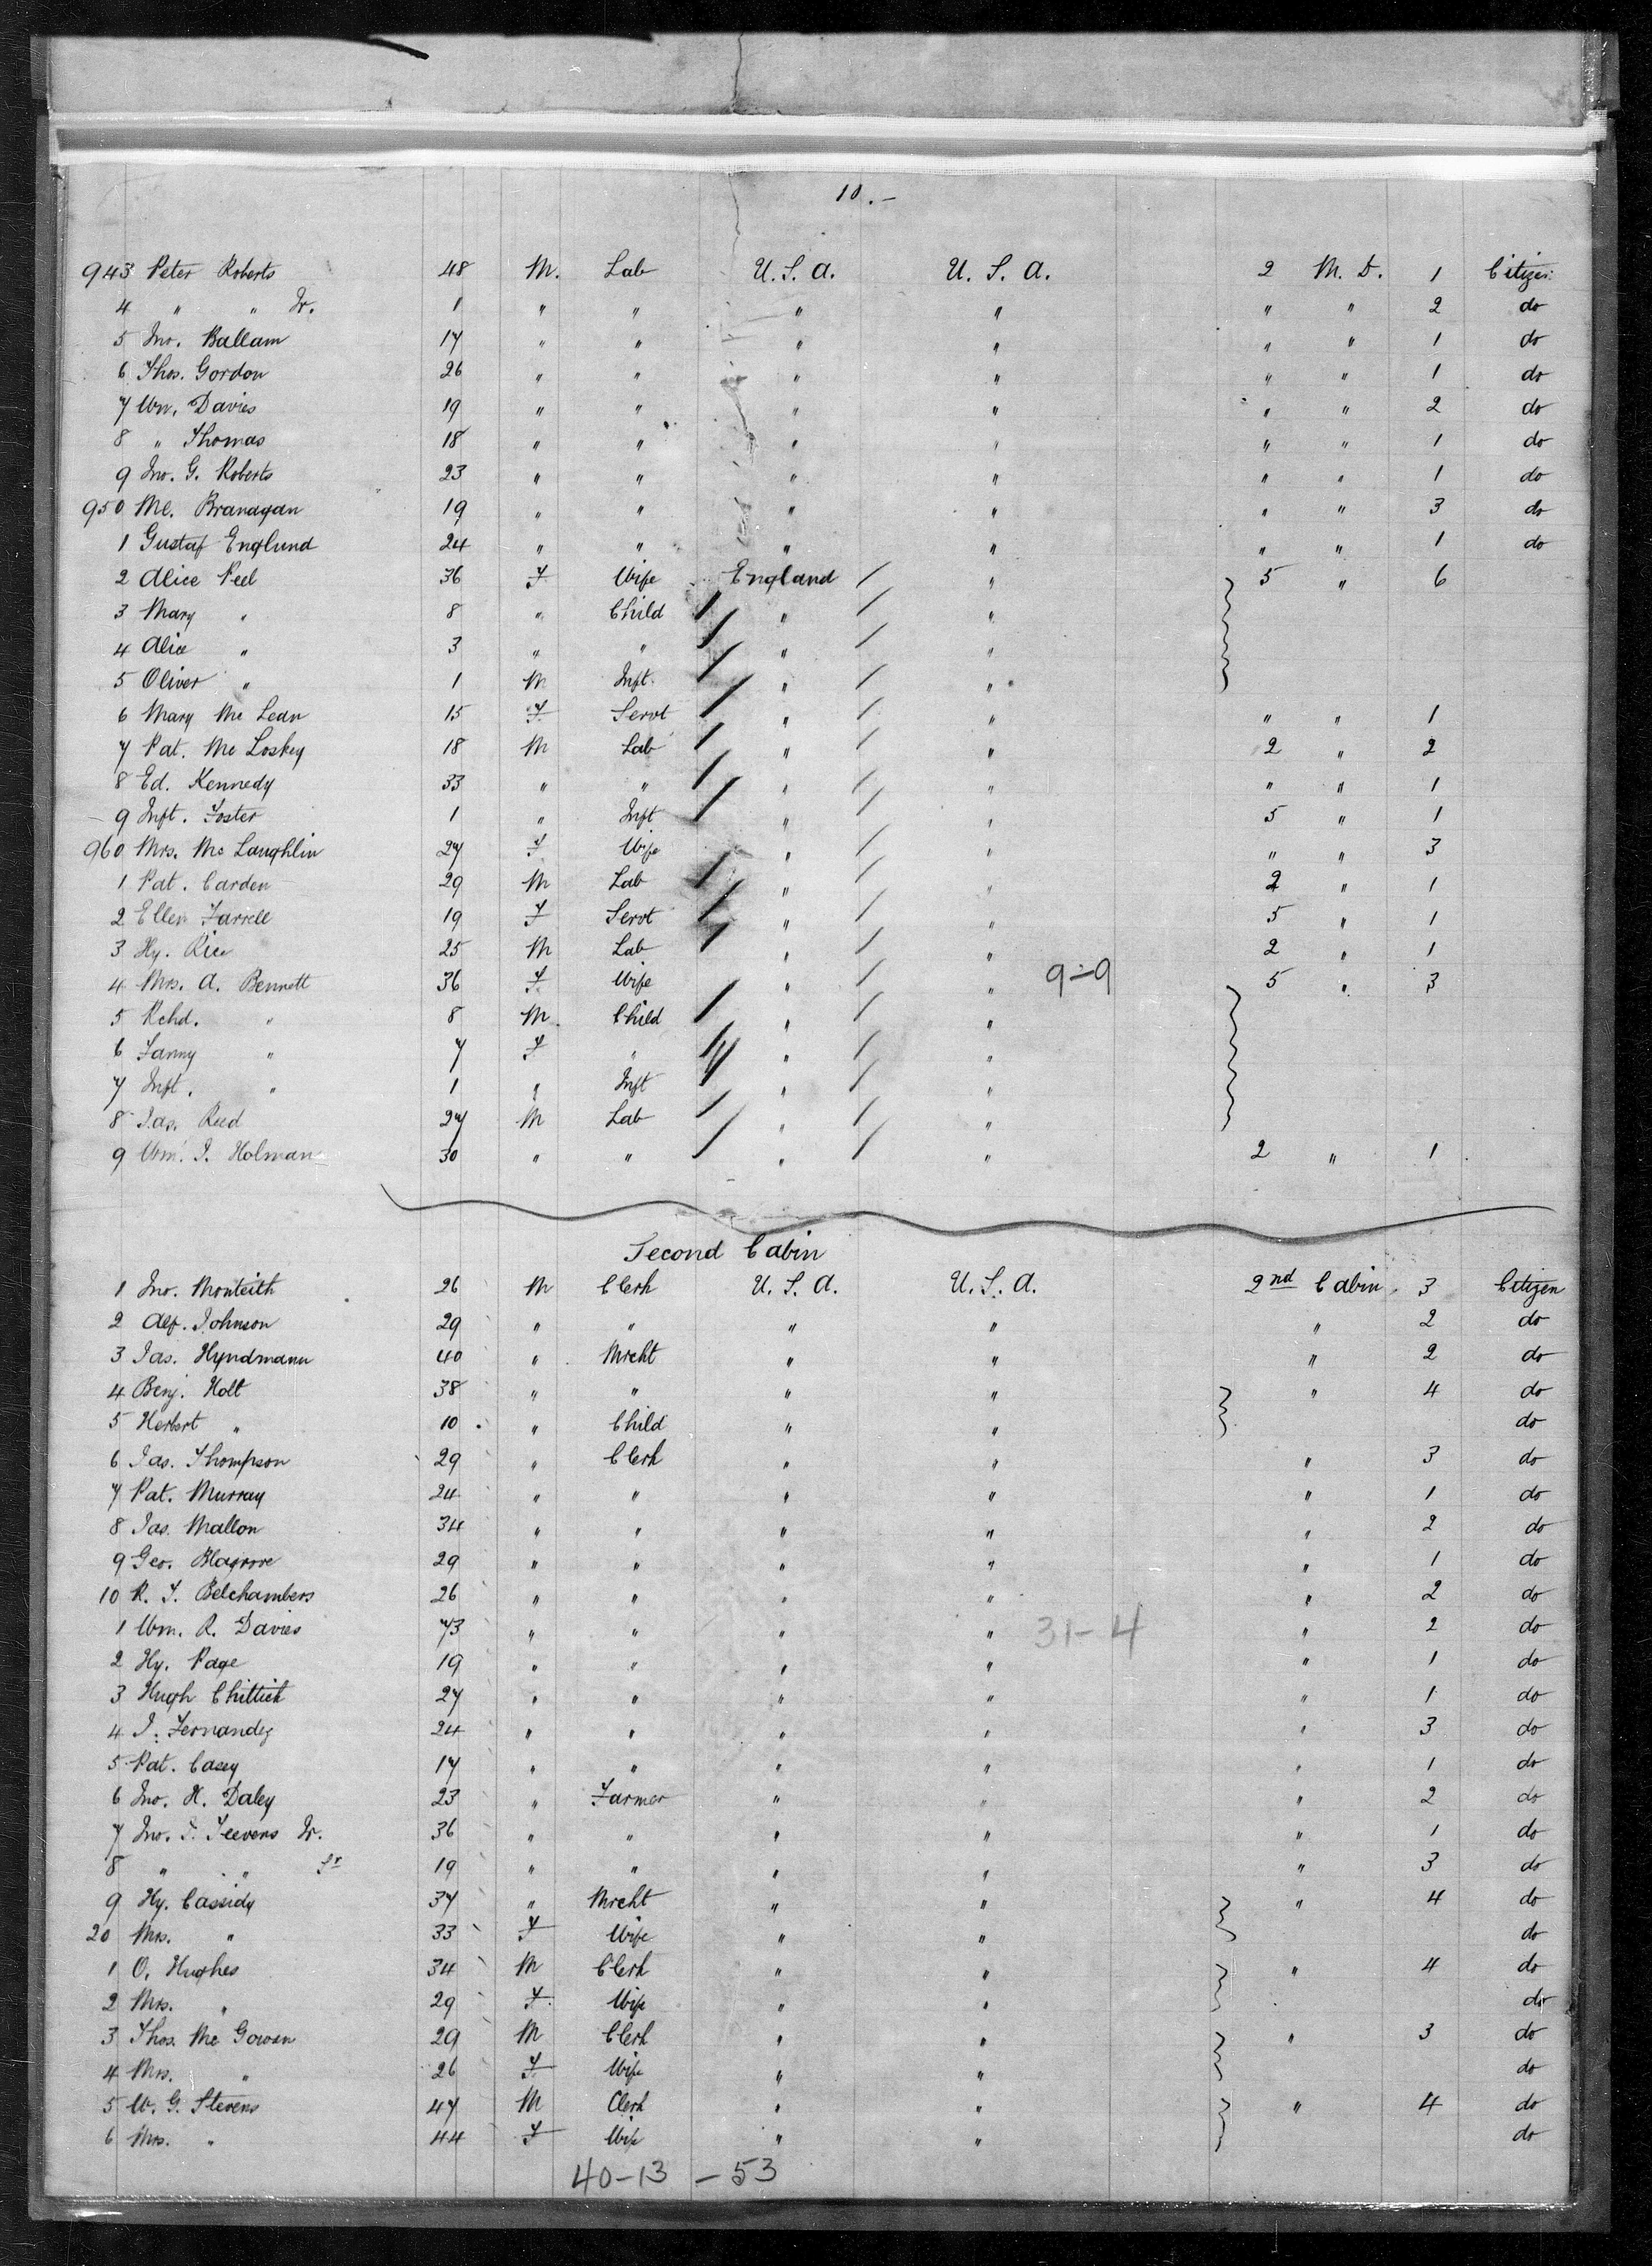 10.-
943 Peter Roberts 48 M. Lab U.S.A. U.S.A. 2 M.D. 1 Citizen
4 " " Jr. 1 " " " " " " 2 do
5 Jno. Ballam 17 " " " " " " 1 do
6 Thos. Gordon 26 " " " " " " 1 do
7 Wm. Davies 19 " " " " " " 2 do
8 " Thomas 18 " " " " " " 1 do
9 Jno. G. Roberts 23 " " " " " " 1 do
950 Ml. Branagan 19 " " " " " " 3 do
1 Gustaf Englund 24 " " " " " " 1 do
2 Alice Peel 36 F Wife England / " 5 " 6
3 Mary " 8 " Child / " / "
4 Alice " 3 " " / " / "
5 Oliver " 1 M Inft. / " / "
6 Mary Mc Lean 15 F Servt / " / " " " 1
7 Pat. Mc Loskey 18 M Lab / " / " 2 " 2
8 Ed. Kennedy 33 " " / " / " " " 1
9 Inft. Foster 1 " Inft / " / " 5 " 1
960 Mrs. Mc Laughlin 27 F Wife " / " " " 3
1 Pat. Carden 29 M Lab / " / " 2 " 1
2 Ellen Farrell 19 F Servt / " / " 5 " 1
3 Hy. Rice 25 M Lab / " / " 2 " 1
4 Mrs. A. Bennett 36 F Wife " / " 9-9 5 " 3
5 Rchd. " 8 M. Child / " / "
6 Fanny " 7 F " / " / "
7 Inft. " 1 " Inft / " / "
8 Jas. Reed 27 M Lab / " / "
9 Wm. J. Holman 30 " " / " / " 2 " 1
Second Cabin
1 Jno. Monteith 26 M Clerk U.S.A. U.S.A. 2nd Cabin 3 Citizen
2 Alf. Johnson 29 " " " " " 2 do
3 Jas. Hyndmann 40 " Mrcht " " " 2 do
4 Benj. Holt 38 " " " " " 4 do
5 Herbert " 10 " Child " " do
6 Jas. Thompson 29 " Clerk " " " 3 do
7 Pat. Murray 24 " " " " " 1 do
8 Jas. Mallon 34 " " " " " 2 do
9 Geo. Blagrove 29 " " " " " 1 do
10 R. T. Belchambers 26 " " " " " 2 do
1 Wm. R. Davies 73 " " " " 31-4 " 2 do
2 Hy. Page 19 " " " " " 1 do
3 Hugh Chittick 27 " " " " " 1 do
4 J. Fernandez 24 " " " " " 3 do
5 Pat. Casey 17 " " " " " 1 do
6 Jno. H. Daley 23 " Farmer " " " 2 do
7 Jno. J. Teevens Jr. 36 " " " " " 1 do
8 " " Sr 19 " " " " " 3 do
9 Hy. Cassidy 37 " Mrcht " " " 4 do
20 Mrs. " 33 F Wife " " do
1 O. Hughes 34 M Clerk " " " 4 do
2 Mrs. " 29 F. Wife " " do
3 Thos. Mc Gowan 29 M Clerk " " " 3 do
4 Mrs. " 26 F Wife " " do
5 W. G. Stevens 47 M Clerk " " " 4 do
6 Mrs. " 44 F Wife " " do
40-13 - 53